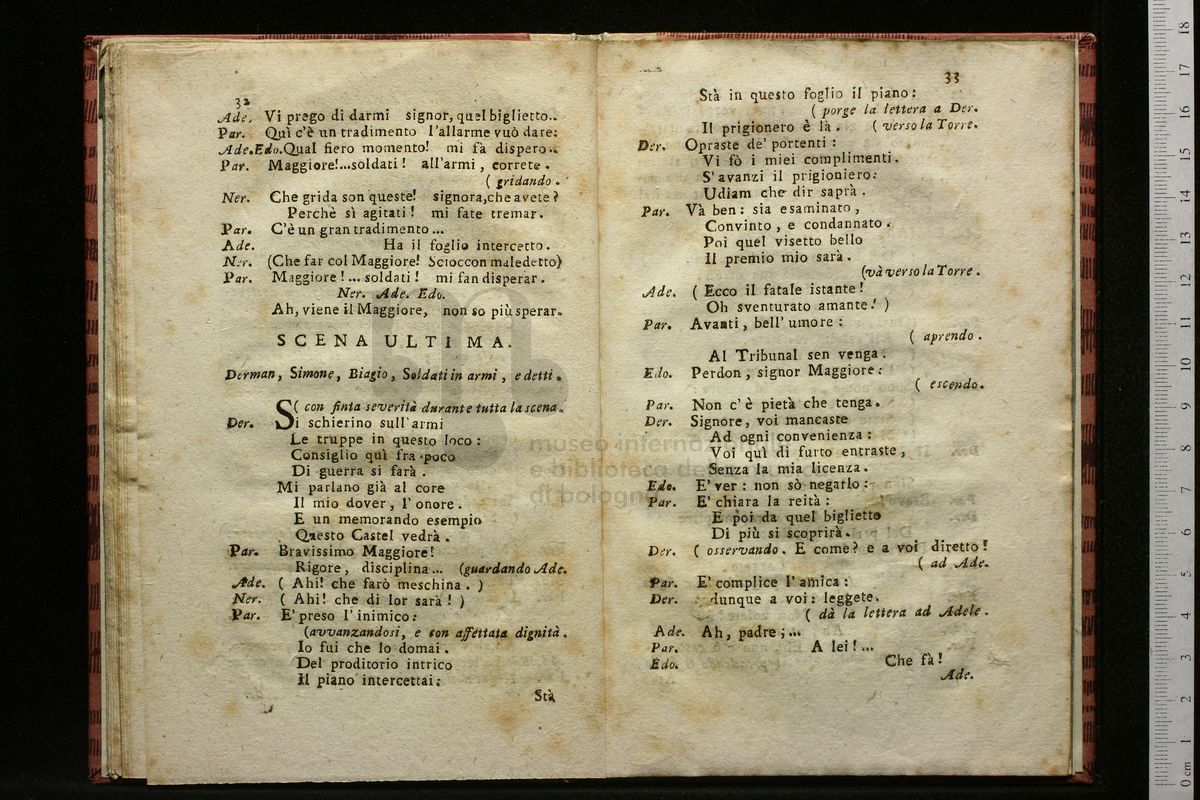 32
Ade. Vi prego di darmi signor, quel biglietto..
Par. Quì c'è un tradimento l'allarme vuò dare:
Ade.Edo. Qual fiero momento! mi fà dispero..
Par. Maggiore!...soldati! all'armi, correte.
( gridando.
Ner. Che grida son queste! signora, che avete?
Perchè sì agitati! mi fate tremar.
Par. C'è un gran tradimento...
Ade. Ha il foglio intercetto.
Ner. (Che far col Maggiore! Scioccon maledetto)
Par. Maggiore!... soldati! mi fan disperar.
Ner. Ade. Edo.
Ah, viene il Maggiore, non so più sperar.
SCENA ULTIMA.
Derman, Simone, Biagio, Soldati in armi, e detti.
( con finta severità durante tutta la scena.
Der. Si schierino sull'armi
Le truppe in questo loco:
Consiglio quì fra poco
Di guerra si farà.
Mi parlano già al core
Il mio dover, l'onore.
E un memorando esempio
Questo Castel vedrà.
Par. Bravissimo Maggiore!
Rigore, disciplina... (guardando Ade.
Ade. ( Ahi! che farò meschina. )
Ner. ( Ahi! che di lor sarà! )
Par. E' preso l'inimico:
(avvanzandosi, e con affettata dignità.
Io fui che lo domai.
Del proditorio intrico
Il piano intercettai:
Stà
33
Stà in questo foglio il piano:
( porge la lettera a Der.
Il prigionero è là. ( verso la Torre.
Der. Opraste de' portenti:
Vi fò i miei complimenti.
S'avanzi il prigioniero:
Udiam che dir saprà.
Par. Và ben: sia esaminato,
Convinto, e condannato.
Poi quel visetto bello
Il premio mio sarà.
(và verso la Torre.
Ade. ( Ecco il fatale istante!
Oh sventurato amante! )
Par. Avanti, bell'umore:
( aprendo.
Al Tribunal sen venga.
Edo. Perdon, signor Maggiore:
( escendo.
Par. Non c'è pietà che tenga.
Der. Signore, voi mancaste
Ad ogni convenienza:
Voi quì di furto entraste,
Senza la mia licenza.
Edo. E' ver: non sò negarlo:
Par. E' chiara la reità:
E poi da quel biglietto
Di più si scoprirà.
Der. ( osservando. E come? e a voi diretto!
( ad Ade.
Par. E' complice l'amica:
Der. dunque a voi: leggete.
( dà la lettera ad Adele.
Ade. Ah, padre;...
Par. A lei!...
Edo. Che fà!
Ade.
museo internazionale
e biblioteca de
di bologna